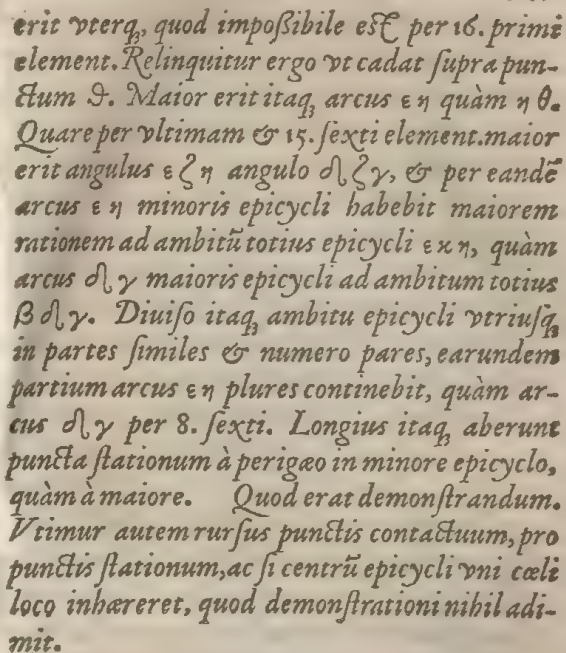 erit vterq́ꝫ, quod impoßibile est per 16. primi
element. Relinquitur ergo vt cadat ſupra pun-
ctum ϑ. Maior erit itaqꝫ arcus ε η quàm η θ.
Quare per vltimam & 15. ſexti element. maior
erit angulus ε ζ η angulo δ ζ γ, & per eandē
arcus ε η minoris epicycli habebit maiorem
rationem ad ambitū totius epicycli ε κ η, quàm
arcus δ γ maioris epicycli ad ambitum totius
β δ γ. Diuiſo itaqꝫ ambitu epicycli vtriuſqꝫ
in partes ſimiles & numero pares, earundem
partium arcus ε η plures continebit, quàm ar-
cus δ γ per 8. ſexti. Longius itaqꝫ aberunt
puncta ſtationum à perigæo in minore epicyclo,
quàm à maiore. Quod erat demonſtrandum.
Vtimur autem rurſus punctis contactuum, pro
punctis ſtationum, ac ſi centrū epicycli vni cœli
loco inhæreret, quod demonſtrationi nihil adi-
mit.